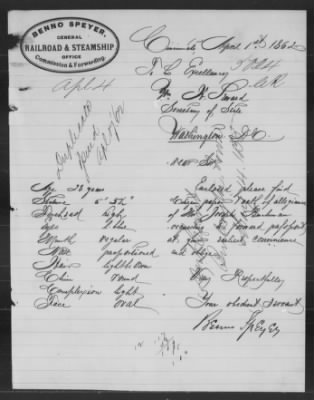 BENNO SPEYER.
GENERAL
RAILROAD & STEAMSHIP
OFFICE
Commission & Forwarding.
April 1st 1862
To his Excellency
Wm H. Seward
Secretary of State
Washington D.C.
Dear Sir
Apl 4
Duplicate
Enclosed please find
oath of allegiance
of Mr. Joseph
to forward passport
at your earliest convenience
and oblige
Very Respectfully
Your obedient Servant
Benno Speyer
Age 28 years
Stature 5' 5½"
Forehead high
eyes blue
Mouth regular
Nose proportioned
Hair light brown
Chin round
Complexion light
Face oval